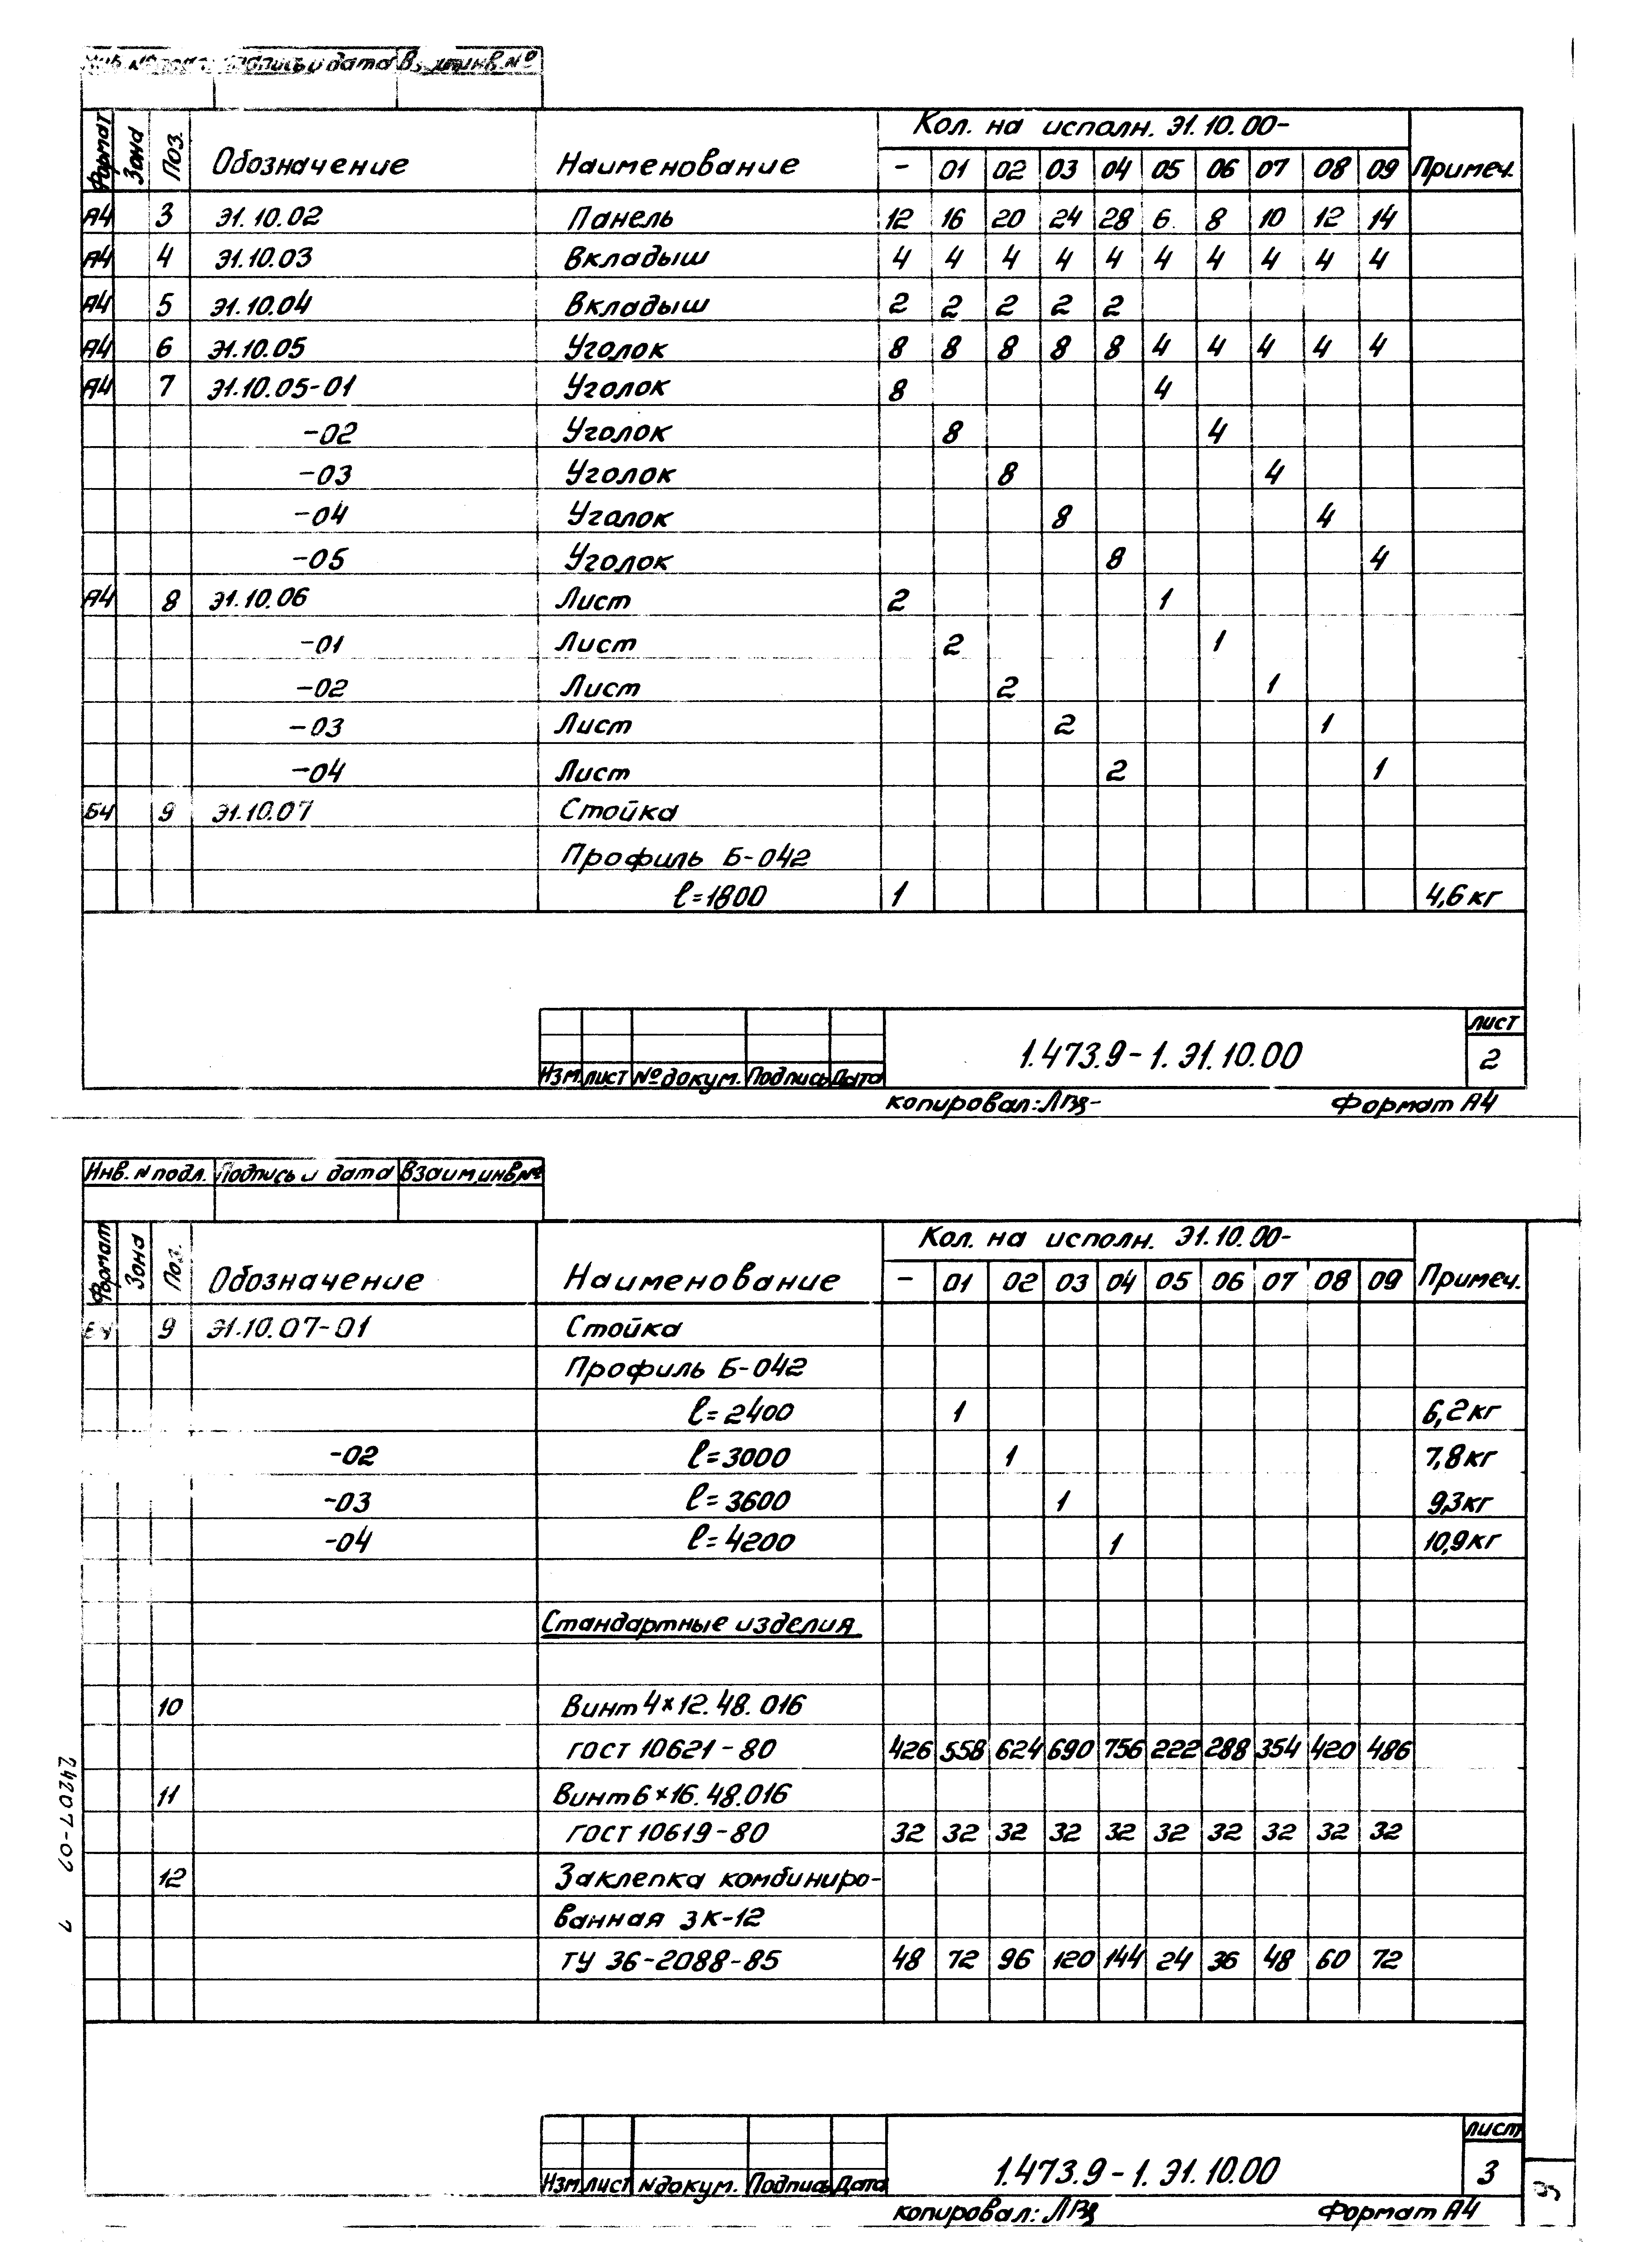 Инв. № подл. Подпись и дата Взам. инв. №
Кол. на исполн. Э1.10.00-
Формат Зона Поз. Обозначение Наименование - 01 02 03 04 05 06 07 08 09 Примеч.
А4 3 Э1.10.02 Панель 12 16 20 24 28 6 8 10 12 14
А4 4 Э1.10.03 Вкладыш 4 4 4 4 4 4 4 4 4 4
А4 5 Э1.10.04 Вкладыш 2 2 2 2 2
А4 6 Э1.10.05 Уголок 8 8 8 8 8 4 4 4 4 4
А4 7 Э1.10.05-01 Уголок 8 4
-02 Уголок 8 4
-03 Уголок 8 4
-04 Уголок 8 4
-05 Уголок 8 4
А4 8 Э1.10.06 Лист 2 1
-01 Лист 2 1
-02 Лист 2 1
-03 Лист 2 1
-04 Лист 2 1
БЧ 9 Э1.10.07 Стойка
Профиль Б-042
ℓ=1800 1 4,6 кг
лист
1.473.9-1. Э1.10.00 2
Изм. лист № докум. Подпись Дата
копировал: Формат А4
Инв. N подл. Подпись и дата Взаим.инв.№
Кол. на исполн. Э1.10.00-
Формат Зона Поз. Обозначение Наименование - 01 02 03 04 05 06 07 08 09 Примеч.
БЧ 9 Э1.10.07-01 Стойка
Профиль Б-042
ℓ=2400 1 6,2кг
-02 ℓ=3000 1 7,8кг
-03 ℓ=3600 1 9,3кг
-04 ℓ=4200 1 10,9кг
Стандартные изделия
10 Винт 4×12.48.016
ГОСТ 10621-80 426 558 624 690 756 222 288 354 420 486
11 Винт 6×16.48.016
ГОСТ 10619-80 32 32 32 32 32 32 32 32 32 32
12 Заклепка комбиниро-
ванная ЗК-12
ТУ 36-2088-85 48 72 96 120 144 24 36 48 60 72
24207-07 7
лист
1.473.9-1. Э1.10.00 3
Изм. лист N докум. Подпись Дата
копировал: Формат А4